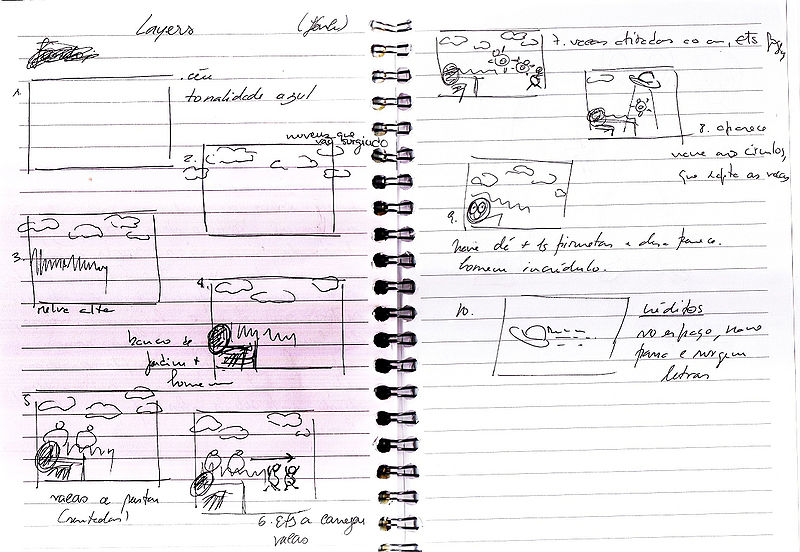 Layers
1.
céu
tonalidade azul
2.
nuvens que
vão surgindo
3.
relva alta
4.
banco de
jardim +
homem
5
vacas a pastar
(sentadas)
6. ETs a carregar
vacas
7. vacas atiradas ao ar, ETs
8. aparece
nave aos círculos,
que rapta as vacas
9.
nave dá + 15 piruetas e desaparece.
homem incrédulo.
10.
créditos
no espaço, nave
para e surgem
letras